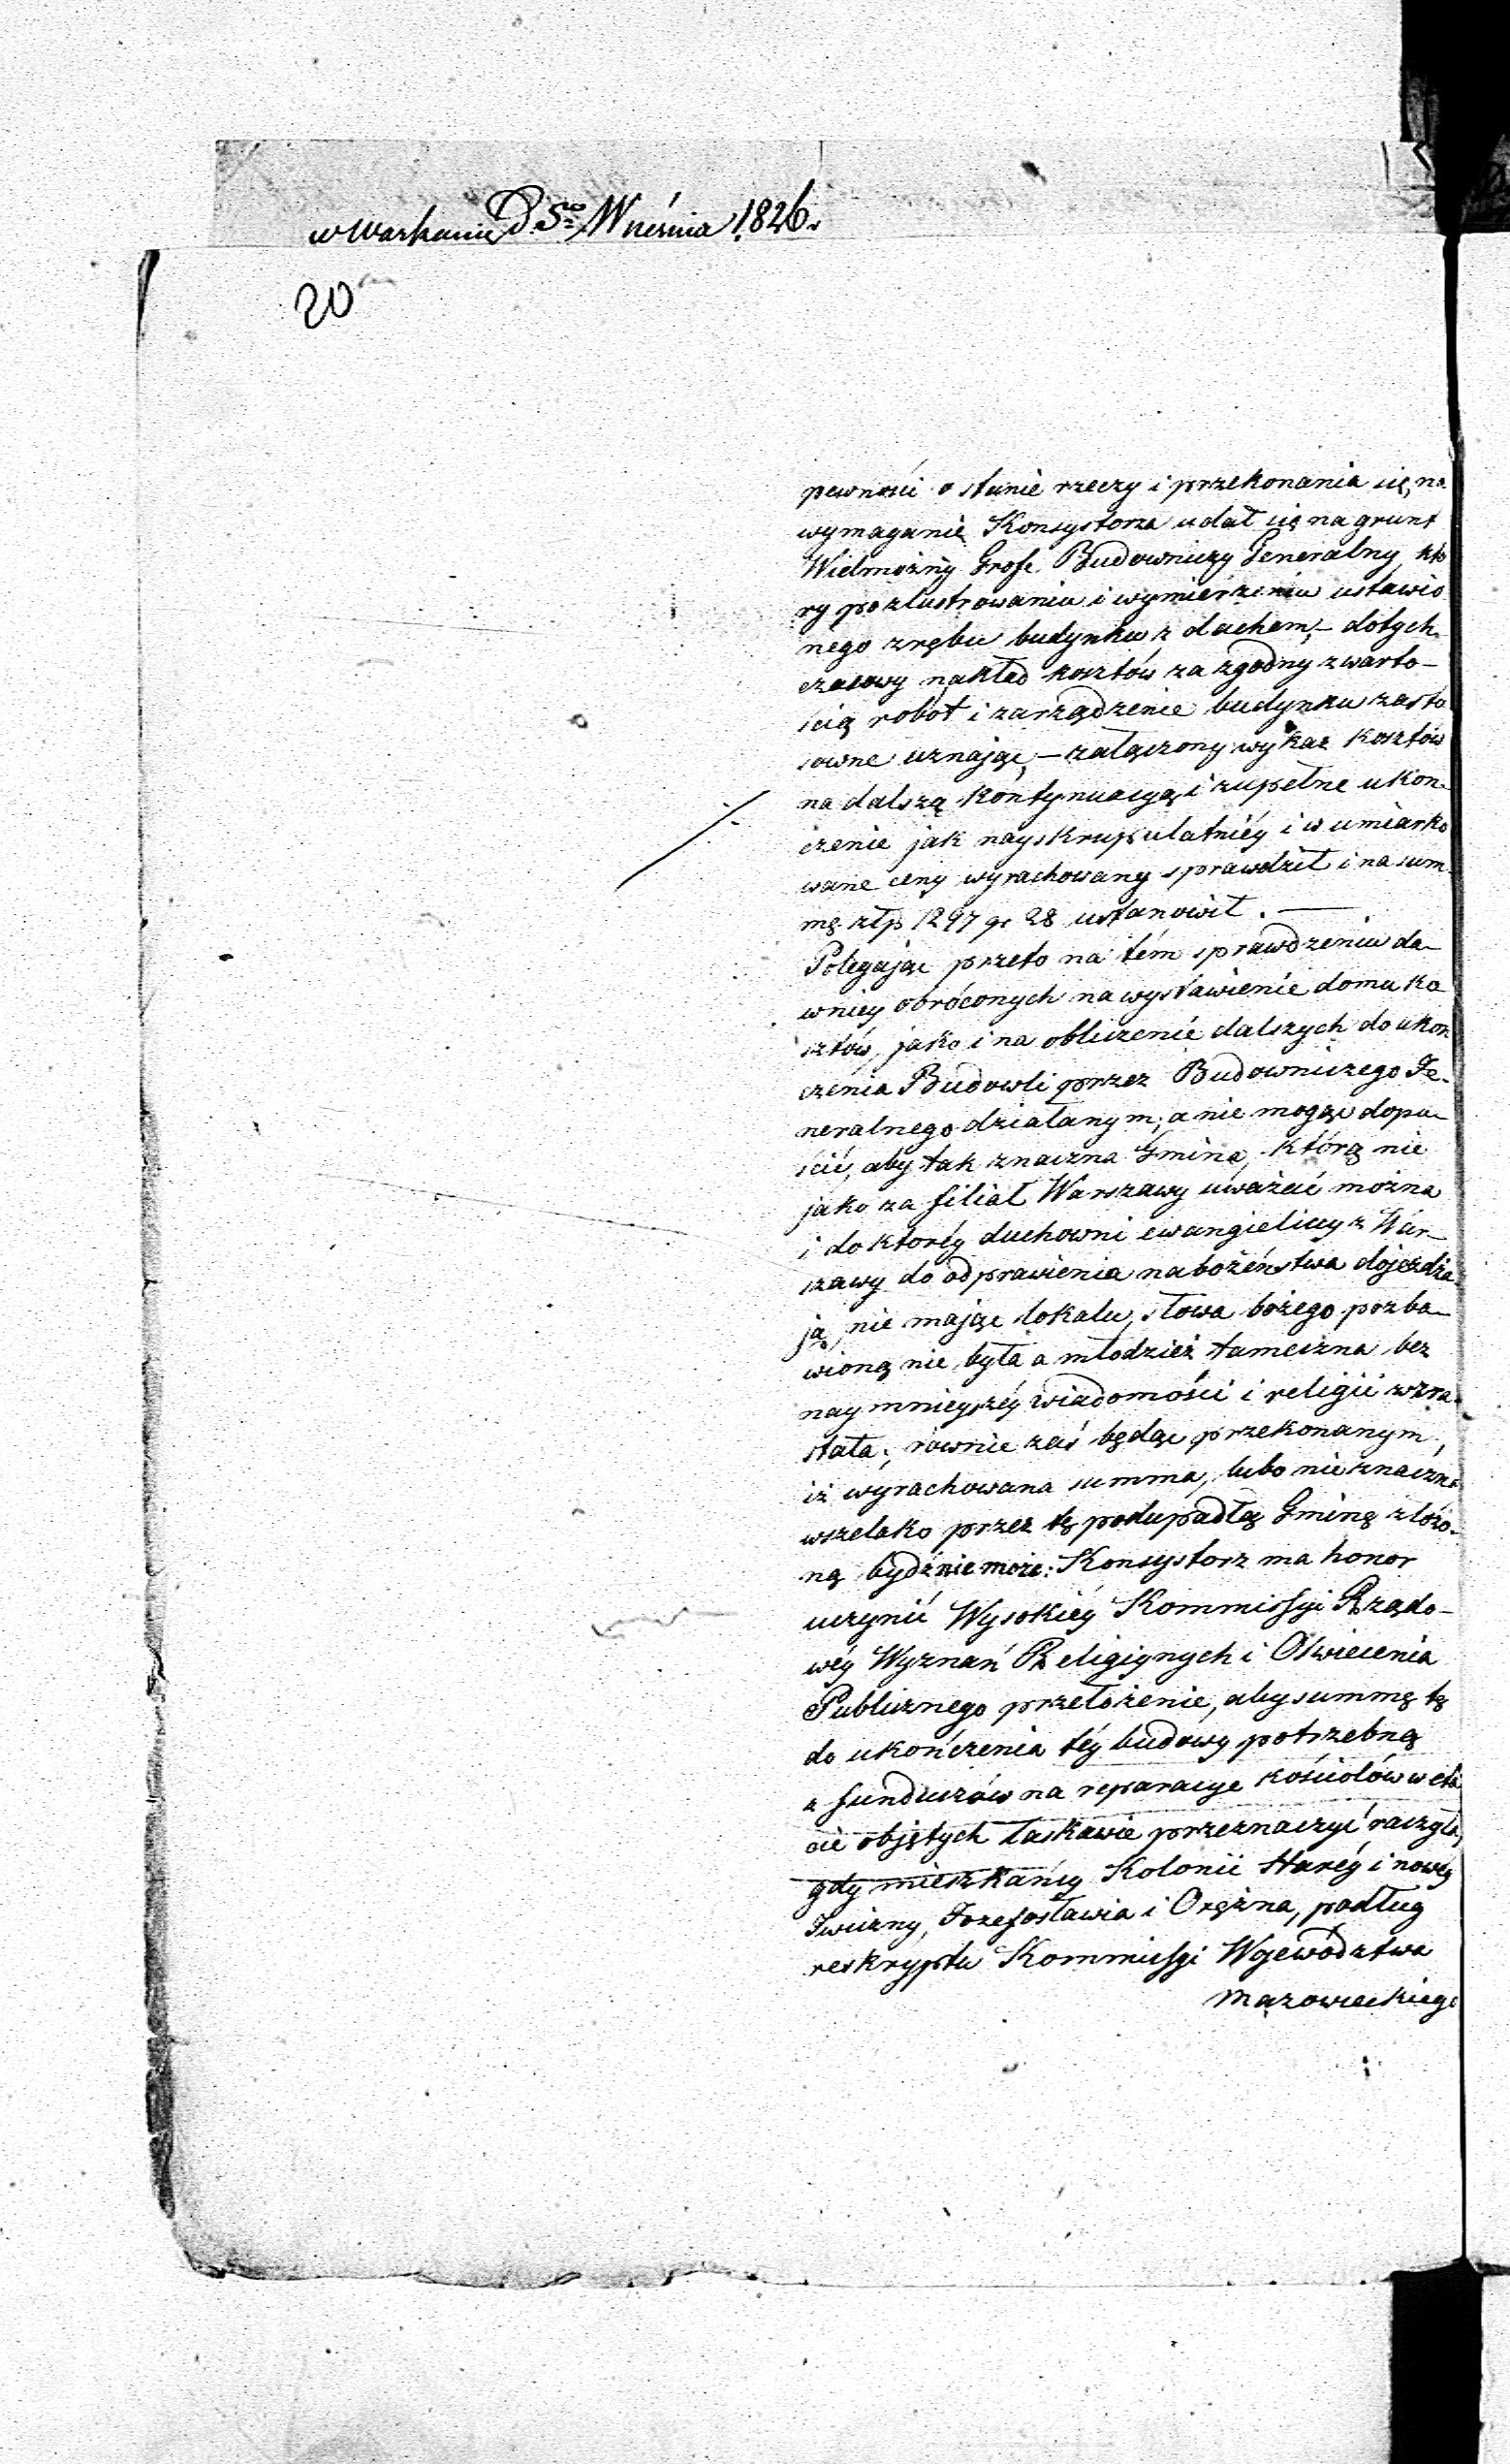 w Warszawie D. 5go Września 1826.
20
pewności o stanie rzeczy i przekonania się, na
wymaganie Konsystorza udał się na grunt
Wielmożny Groffe Budowniczy Generalny, któ
ry po zlustrowaniu i wymierzeniu ustawio
nego zrębu budynku z dachem, – dotych
czasowy nakład kosztów za zgodny z warto–
ścią robót i zarządzenie budynku zasto
sowne uznając, – załączony wykaz kosztów
na dalszą kontynuacyą i zupełne ukoń–
czenie jak nayskrupulatniéy i w umiarko
wane ceny wyrachowany sprawdził i na sum
mę złp 1297 gr 28 ustanowił. —
Polegając przeto na tém sprawdzeniu da–
wniey obróconych na wystawienie domu ko
sztów, jako i na obliczenie dalszych do ukoń
czenia Budowli przez Budowniczego Je–
neralnego działanym; a nie mogąc dopu–
ścić, aby tak znaczna Gmina, którą nie
jako za filiał Warszawy uważać można
i do któréy duchowni ewangieliccy z War–
szawy do odprawienia nabożeństwa dojeżdża–
ją, nie mając lokalu, słowa bożego pozba–
wioną nie była a młodzież tameczna bez
naymnieyszéy wiadomości i religii wzra–
stała; rownie zaś będąc przekonanym,
iż wyrachowana summa, lubo nieznaczna
wszelako przez tę podupadłą Gminę złożo–
ną bydź nie może: Konsystorz ma honor
uczynić Wysokiéy Kommissyi Rządo–
wéy Wyznań Religiynych i Oświecenia
Publicznego przełożenie, aby summę tę
do ukończenia téy budowy potrzebną
z funduszów na reparacye kościołów w eta
cie objętych łaskawie przeznaczyć raczyła,
gdy mieszkańcy Kolonii Staréy i nowéy
Iwiczny, Jozefosławia i Orężna, podług
reskryptu Kommissyi Wojewodztwa
Mazowieckiego